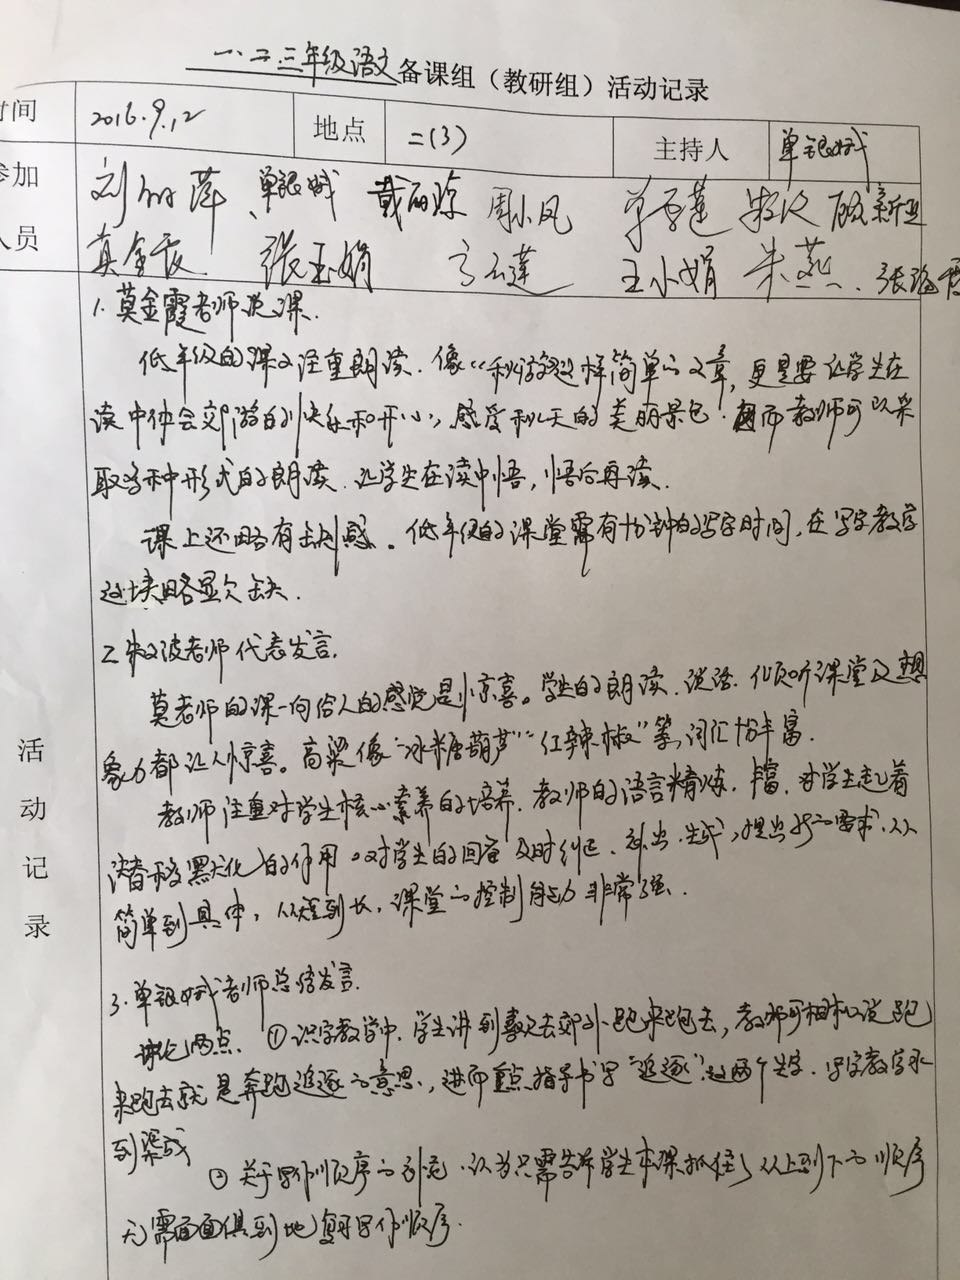 一、二、三年级语文备课组（教研组）活动记录
时间 2016.9.12 地点 二(3) 主持人 单银
参加人员
刘 萍 单银 戴丽 周小凤 莲 顾新
莫金霞 张玉娟 莲 王小娟 朱燕 张
1. 莫金霞老师说课.
低年级的课文注重朗读. 像“秋游”这样简单的文章, 更是要让学生在
读中体会郊游的快乐和开心, 感受秋天的美丽景色. 而教师可以采
取各种形式的朗读. 让学生在读中悟, 悟后再读.
课上还略有缺憾。低年级的课堂需有十分钟的写字时间, 在写字教学
这块略显欠缺.
2. 波老师代表发言.
莫老师的课一向给人的感觉是小惊喜。学生的朗读. 说话. 倾听课堂及想
象力都让人惊喜。高粱像“冰糖葫芦”“红辣椒”等, 词汇十分丰富.
教师注重对学生核心素养的培养. 教师的语言精炼. 丰富. 对学生起着
潜移默化的作用。对学生的回答及时纠正. 补出. 生成, 提出新的要求. 从
简单到具体, 从短到长. 课堂的控制能力非常强.
3. 单银老师总结发言.
两点. ① 识字教学中. 学生讲到喜欢去郊外跑来跑去, 教师可相机说跑
来跑去就是奔跑追逐的意思, 进而重点指导书写“追逐”这两个生字. 写字教学水
到渠成
② 关于写作顺序的 . 认为只需告诉学生本课抓住从上到下的顺序
无需面面俱到地 写作顺序.
活动记录